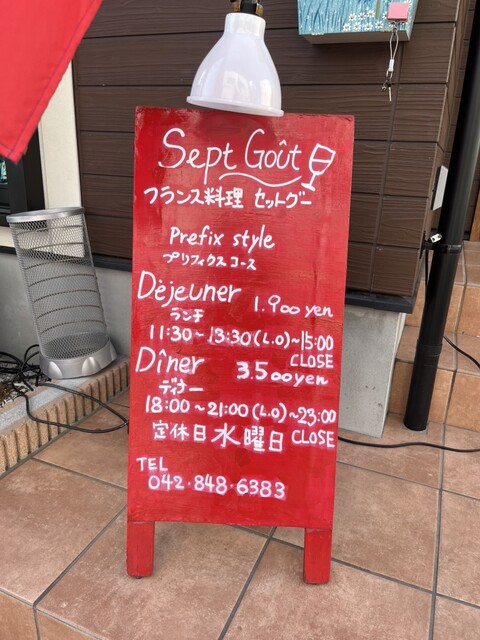 Sept Goût
フランス料理 セットグー
Prefix style
プリフィクスコース
Déjeuner 1.900 yen
ランチ
11:30~13:30(L.O)~15:00
CLOSE
Dîner 3.500yen
ディナー
18:00~21:00(L.O)~23:00
定休日 水曜日 CLOSE
TEL
042・848・6383